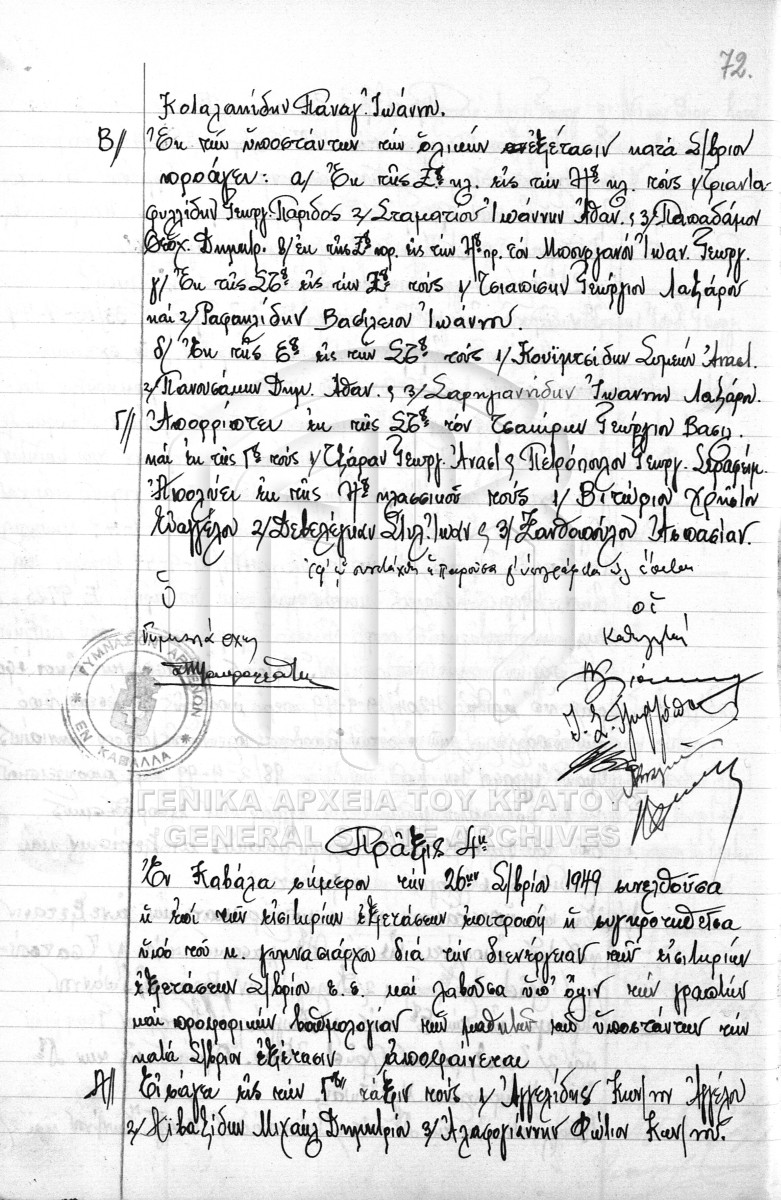 72.
Κοταλακίδην Παναγ. Ἰωάννου.
Β// Ἐκ τῶν ὑποστάντων τήν ὁλικήν ἐξέτασιν κατά Σ/βριον
προάγει: α/ Ἐκ τῆς Ζης κλ. εἰς τήν Ηην κλ. τούς 1/ Τριαντα-
φυλλίδην Γεωργ. Πάριδος 2/ Σταματίου Ἰωάννην Ἀθαν. ς 3/ Παπαδάμου
Θεοχ. Δημητρ. β/ ἐκ τῆς Ζης πρ. εἰς τήν Ηην πρ. τόν Ἰωαν. Γεωργ.
γ/ Ἐκ τῆς ΣΤης εἰς τήν Ζην τούς 1/ Τσιαπίσην Γεώργιον Λαζάρου
καί 2/ Ραφαηλίδην Βασίλειον Ἰωάννου.
δ/ Ἐκ τῆς Εης εἰς τήν ΣΤην τούς 1/ Κουϊμτσίδην Συμεών Ἀναστ.
2/ Πανουσάκην Δημ. Ἀθαν. ς 3/ Σαρηγιαννίδην Ἰωάννην Λαζάρου.
Γ// Ἀπορρίπτει ἐκ τῆς ΣΤης τόν Τσακίρην Γεώργιον Βασιλ.
καί ἐκ τῆς Γης τούς 1/ Τζάραν Γεωργ. Ἀναστ ς Πετρόπουλον Γεωργ. Σεραφείμ.
Ἀπολύει ἐκ τῆς Ηης κλασσικοῦ τούς 1/ Βιτώριον Χρῆστον
Εὐαγγέλου 2/ Δεβελέγκαν Στυλ. Ἰωάν ς 3/ Ξανθοπούλου Ἀσπασίαν.
Ἐφ' ᾧ συνετάχθη ἡ παροῦσα ς ὑπογράφεται ὡς ἕπεται
Ὁ
Γυμνασιάρχης
Οἱ
Καθηγηταί
ΓΥΜΝΑΣΙΟΝ ΑΡΡΕΝΩΝ
ΕΝ ΚΑΒΑΛΛΑ
ΓΕΝΙΚΑ ΑΡΧΕΙΑ ΤΟΥ ΚΡΑΤΟΥΣ
GENERAL STATE ARCHIVES
Πρᾶξις 4η
Ἐν Καβάλᾳ σήμερον τήν 26ην Σ/βρίου 1949 συνελθοῦσα
ἡ ἐπί τῶν εἰσιτηρίων ἐξετάσεων ἐπιτροπή ἡ συγκροτηθεῖσα
ὑπό τοῦ κ. γυμνασιάρχου διά τήν διενέργειαν τῶν εἰσιτηρίων
ἐξετάσεων Σ/βρίου ἐ.ἔ. καί λαβοῦσα ὑπ' ὄψιν τήν γραπτήν
καί προφορικήν βαθμολογίαν τῶν μαθητῶν τῶν ὑποστάντων τήν
κατά Σ/βριον ἐξέτασιν ἀποφαίνεται
Α// Εἰσάγει εἰς τήν Γην τάξιν τούς 1/ Ἀγγελίδης Κων/νον Ἀγγέλου
2/ Μιχαήλ Δημητρίου 3/ Ἀλαφογιάννην Φώτιον Κων/νου.